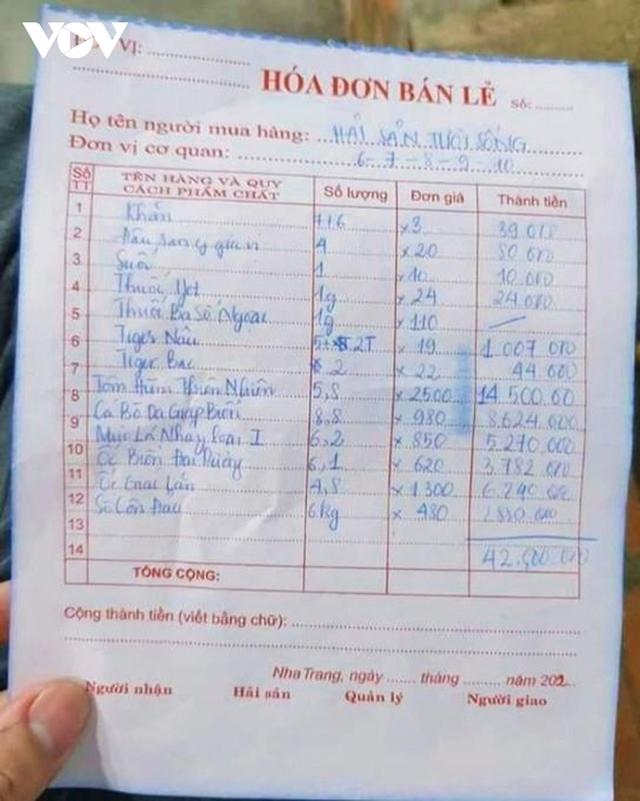 VOV
ĐƠN VỊ:
HÓA ĐƠN BÁN LẺ Số:
Họ tên người mua hàng: HẢI SẢN TƯƠI SỐNG
Đơn vị cơ quan: 6-7-8-9-10
Số TT TÊN HÀNG VÀ QUY CÁCH PHẨM CHẤT Số lượng Đơn giá Thành tiền
1 Khăn x3 39.000
2 4 x20 80 000
3 Suối 1 x10 10.000
4 Thuốc 1g x24 24 000
5 Thuốc Ba Số Ngoại 1g x110
6 Tiger Nâu 2T x 19 1.007 000
7 Tiger Bạc 2 x 22 44 000
8 Tôm Hùm Thiên Nhiên 5,8 x 2500 14 500.00
9 Cá Bò Da Giáp Biển 8,8 x 980 8.624.000
Mực Lá Nháy Loại I 6,2 x 850 5.270 000
10 Ốc Biển Đại Dương 6,1 x 620 3.782 000
11 Ốc Lớn 4,8 x 1300 6.240 000
12 Sò Côn Đảo 6kg x 480 2880 000
13
14 42.500.000
TỔNG CỘNG:
Cộng thành tiền (viết bằng chữ):
Nha Trang, ngày tháng năm 202
Người nhận Hải sản Quản lý Người giao